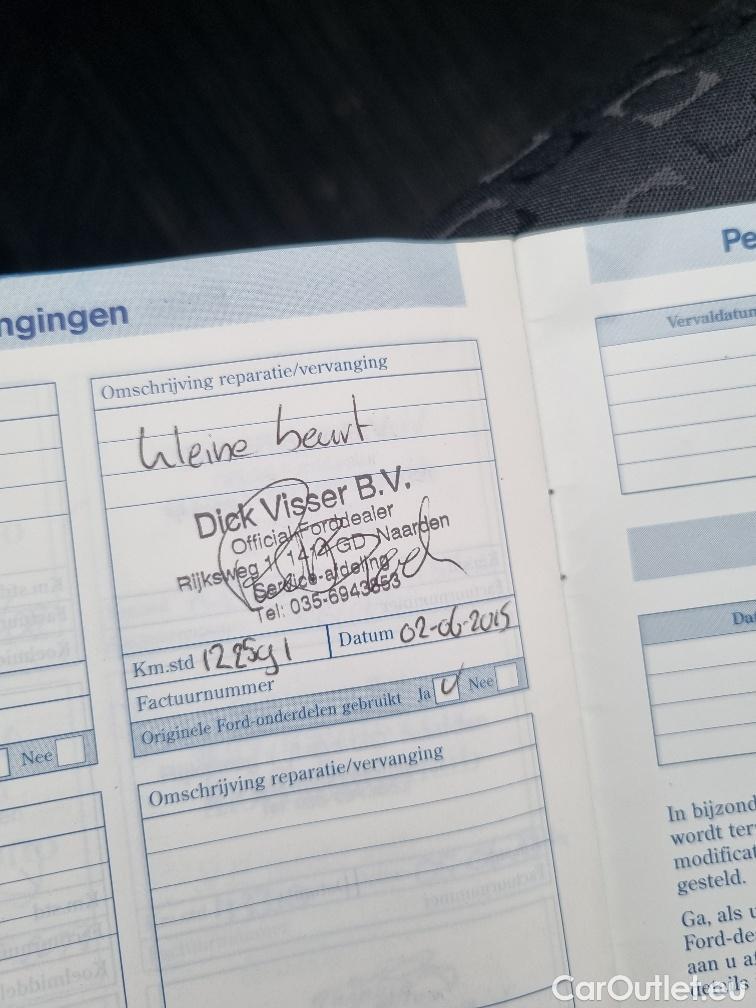 ngingen
Omschrijving reparatie/vervanging
kleine beurt
Dick Visser B.V.
Official Forddealer
Rijksweg 1 1412 GD Naarden
Service-afdeling
Tel: 035-6943853
Km.std 122591
Datum 02-06-2015
Factuurnummer
Originele Ford-onderdelen gebruikt Ja Nee
Nee
Omschrijving reparatie/vervanging
Pe
Vervaldatum
Da
In bijzond
wordt ter
modificat
gesteld.
Ga, als u
Ford-de
aan u af
details
CarOutlet.eu